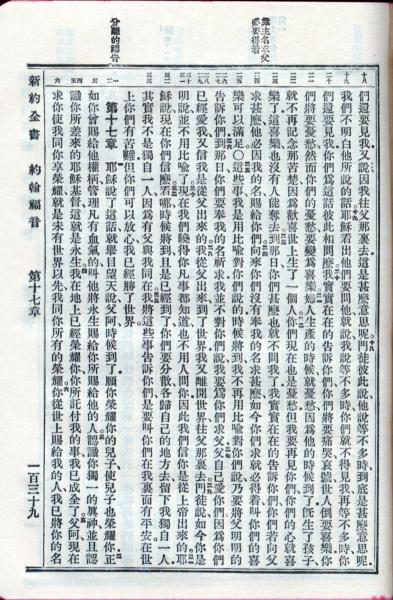 靠主名求父
必要得着
分離的禱告
們還要見我又說因我往父那裏去這是甚麽意思呢門徒彼此說他說等不多時到底是甚麽意思呢
我們不明白他所說的話耶穌看出他們要問他就說我說等不多時你們就不得見我再等不多時你
們還要見我你們爲這話彼此相問麽我實實在在的告訴你們你們將要痛哭哀號世人倒要喜樂你
們將要憂愁然而你們的憂愁要變爲喜樂婦人生產的時候就憂愁因爲他的時候到了旣生了孩子、
就不再記念那苦楚因爲歡喜世上生了一個人你們現在也是憂愁但我要再見你們你們的心就喜
樂了這喜樂也沒有人能奪去到那日你們甚麽也就不問我了我實實在在的告訴你們你們若向父
求甚麽他必因我的名賜給你們向來你們沒有奉我的名求甚麽如今你們求就必得着叫你們的喜
樂可以滿足○這些事我是用比喻對你們說的時候將到我不再用比喻對你們說乃要將父明明的
告訴你們到那日你們要奉我的名祈求我並不對你們說我要爲你們求父父自己愛你們因爲你們
已經愛我又信我是從父出來的我從父出來到了世界我又離開世界往父那裏去門徒說如今你是
明說並不用比喻了現在我們曉得你凡事都知道也不用人問你因此我們信你是從上帝出來的耶
穌說現在你們信麽看哪時候將到且是已經到了你們要分散各歸自己的地方去留下我獨自一人
其實我不是獨自一人因爲有父與我同在我將這些事告訴你們是要叫你們在我裏面有平安在世
上你們有苦難但你們可以放心我已經勝了世界
第十七章 耶穌說了這話就舉目望天說父阿時候到了願你榮耀你的兒子、使兒子也榮耀你正
如你曾賜給他權柄管理凡有血氣的叫他將永生賜給你所賜給他的人認識你獨一的眞神並且認
識你所差來的耶穌基督這就是永生我在地上已經榮耀你你所託付我的事我已成全了父阿現在
求你使我同你享榮耀就是未有世界以先我同你所有的榮耀你從世上賜給我的人我已將你的名
新約全書 約翰福音 第十七章 一百三十九